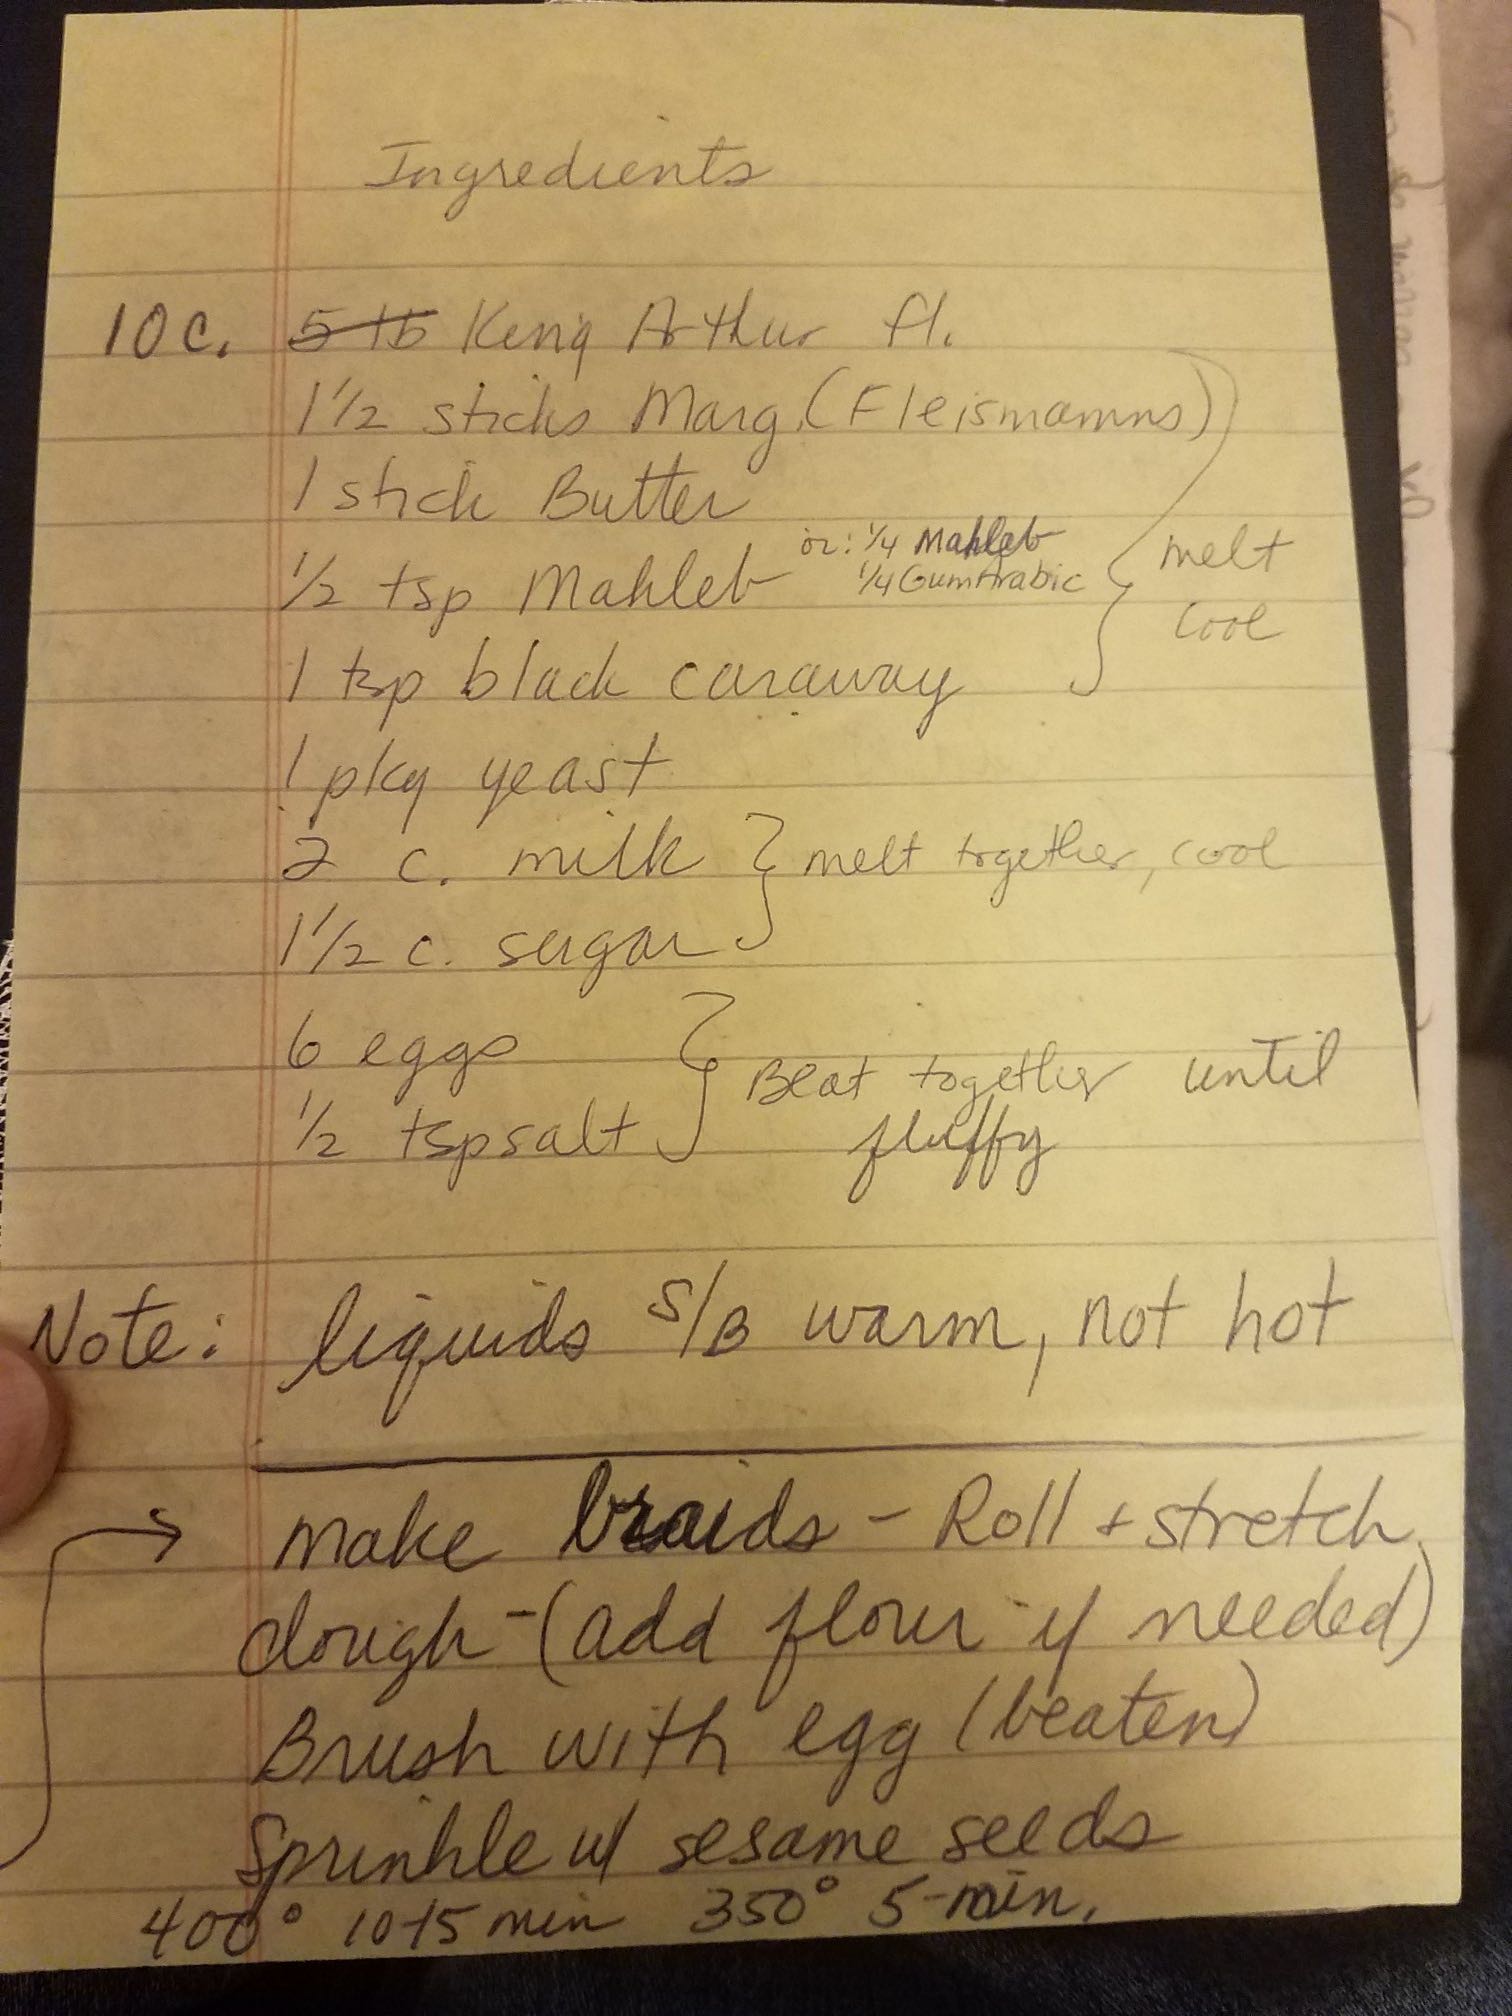 Ingredients
10 c. 5 lb King Arthur fl.
1 1/2 sticks Marg. (Fleismamns)
1 stick Butter
1/2 tsp Mahleb or: 1/4 Mahleb
1/4 Gum Arabic
melt
cool
1 tsp black caraway
1 pkg yeast
2 c. milk } melt together, cool
1 1/2 c. sugar
6 eggs
1/2 tsp salt } Beat together until
fluffy
Note: liquids S/B warm, not hot
→ Make braids - Roll + stretch
dough - (add flour if needed)
Brush with egg (beaten)
Sprinkle w/ sesame seeds
400° 10-15 min 350° 5-min.